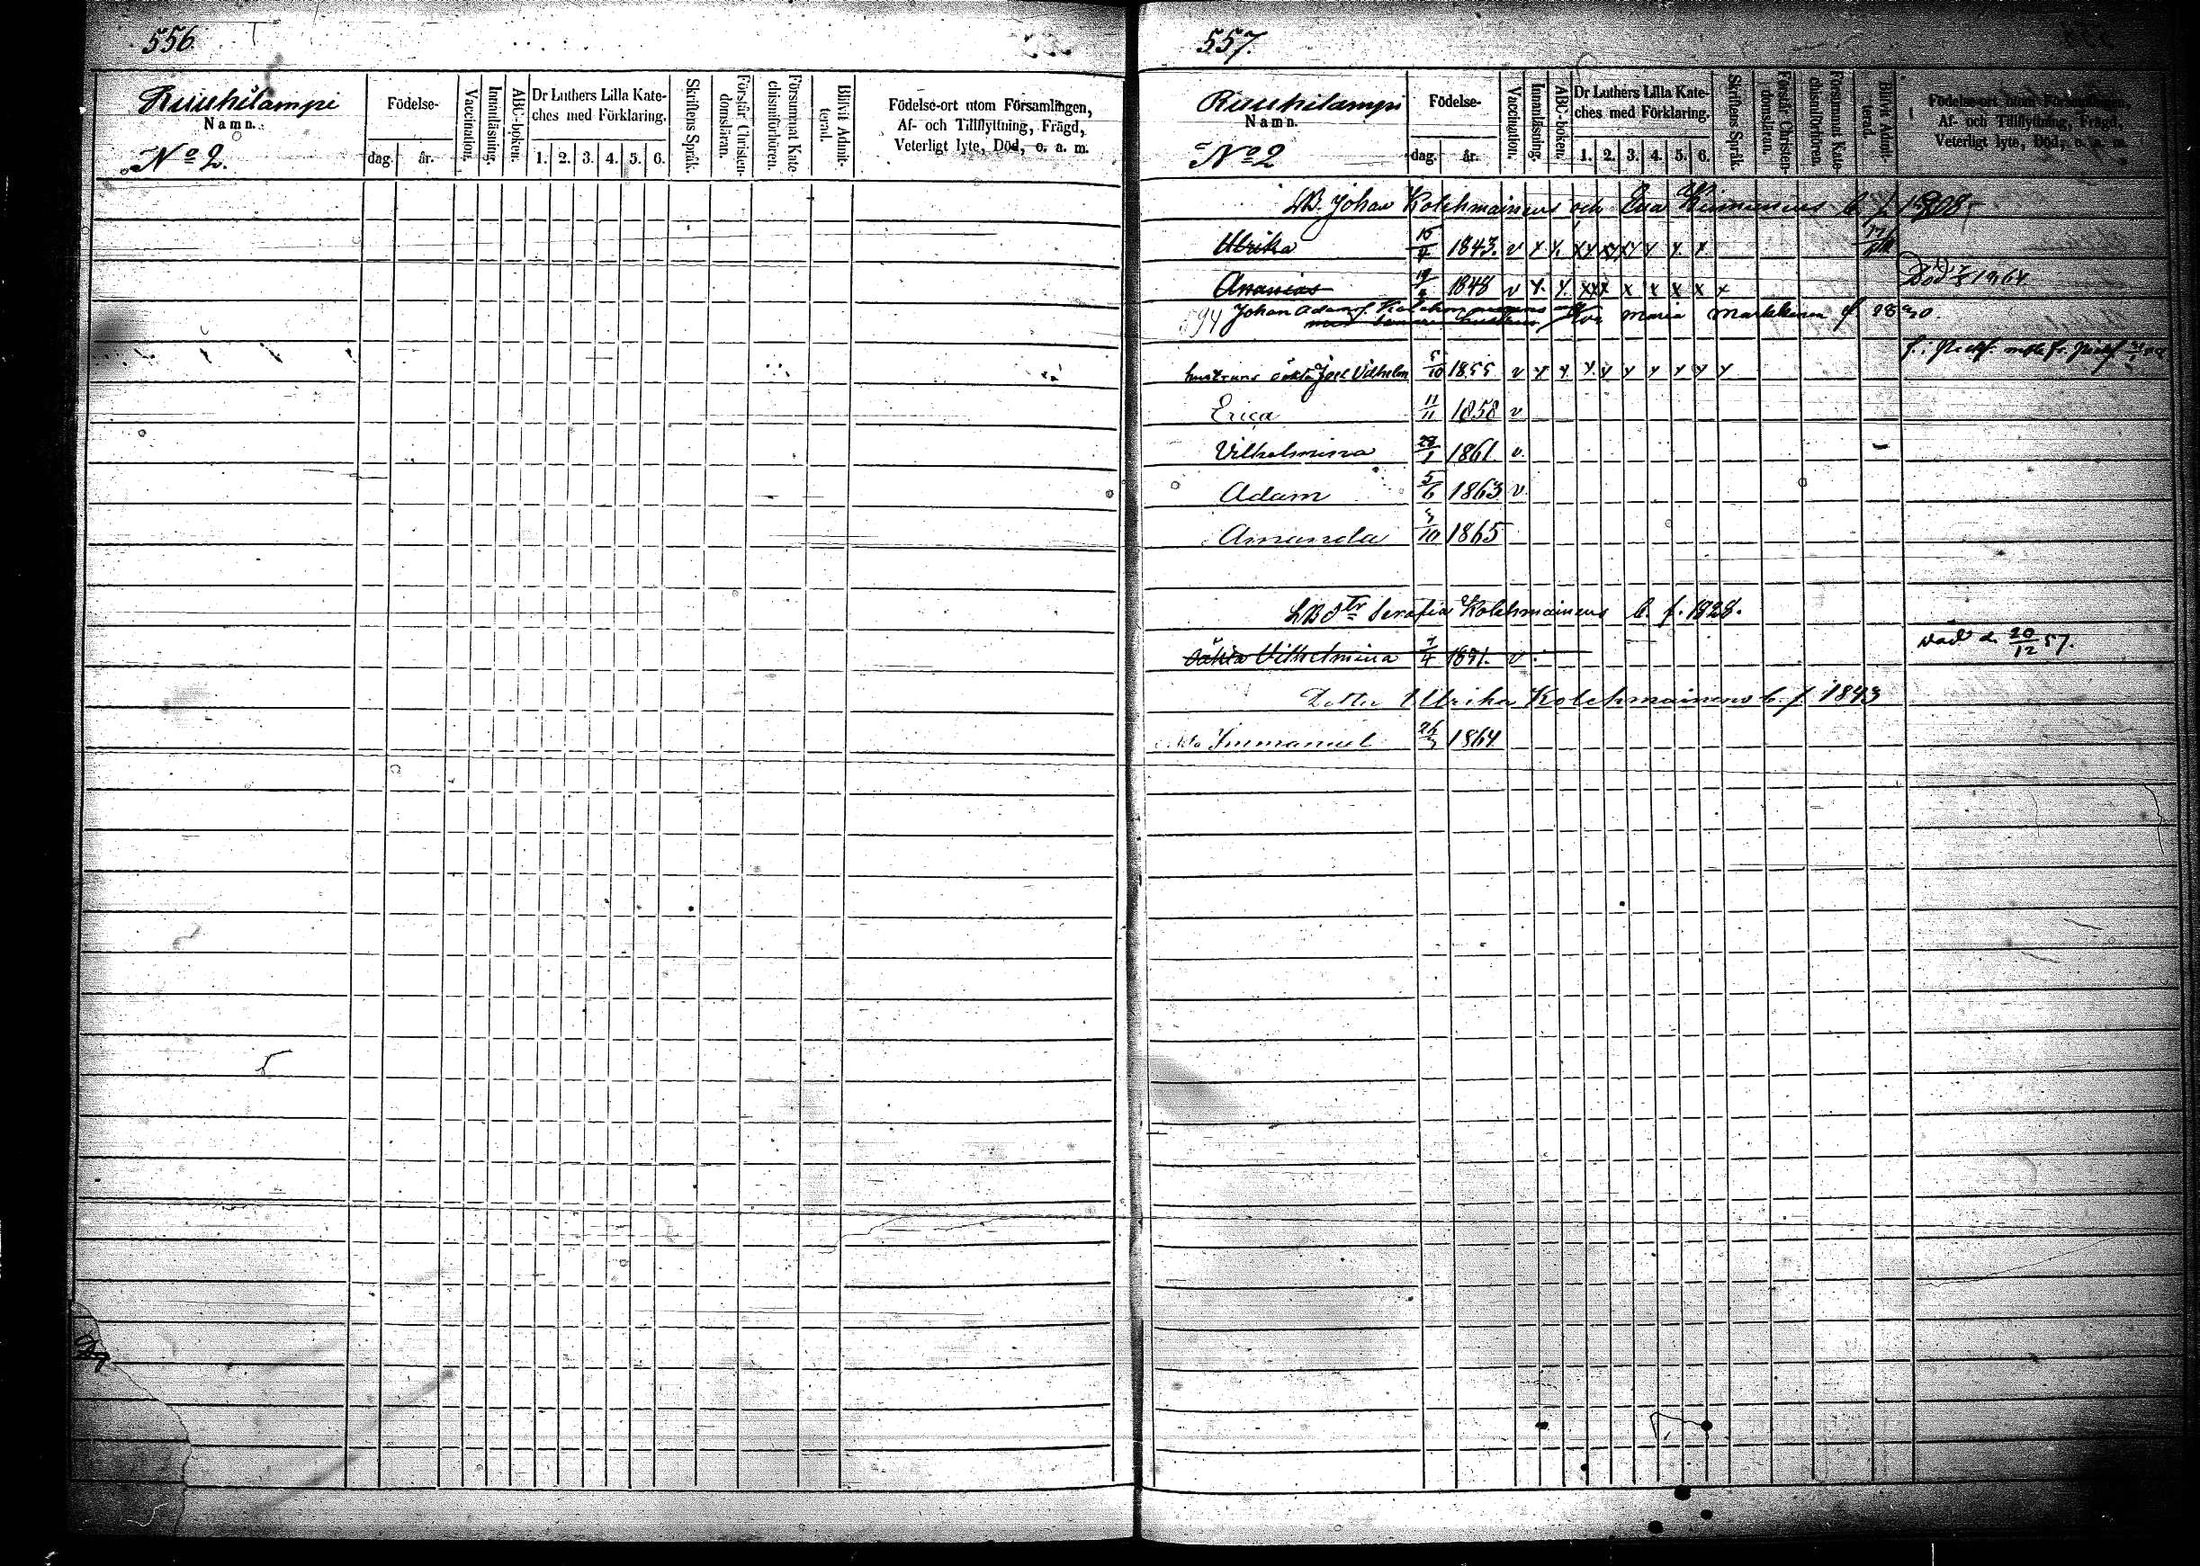 556.
Ruuhilampi
Namn.
No 2.
Födelse-
dag. år.
Vaccination.
Innanläsning.
ABC-boken.
Dr Luthers Lilla Kate-
ches med Förklaring.
1. 2. 3. 4. 5. 6.
Skriftens Språk.
Förstår Christen-
domsläran.
Försummat Kate-
chismiförhören.
Blifvit Admit-
terad.
Födelse-ort utom Församlingen,
Af- och Tillflyttning, Frägd,
Veterligt lyte, Död, o. a. m.
557.
Ruuhilampi
Namn.
No 2
Födelse-
dag. år.
Vaccination.
Innanläsning.
ABC-boken.
Dr Luthers Lilla Kate-
ches med Förklaring.
1. 2. 3. 4. 5. 6.
Skriftens Språk.
Förstår Christen-
domsläran.
Försummat Kate-
chismiförhören.
Blifvit Admit-
terad.
Födelse-ort utom Församlingen,
Af- och Tillflyttning, Frägd,
Veterligt lyte, Död, o. a. m.
Johan Kolehmainens och Eva b. f. 1808
Ulrika 15/4 1843. v x x. x x x x x x x
Ananias 1848 v x. x. x x x x x x x x Död 1864
594 Johan Adam Eva Maria Markkanen f 1830.
hustruns oäkta Joel Vilhelm 5/10 1855 v x x x x x x x x x
Erica 11/11 1858 v
Vilhelmina 28/1 1861 v.
Adam 5/6 1863 v
Amanda 3/10 1865
LBdtr Serafia Kolehmainens b. f. 1828.
Oäkta Vilhelmina 7/4 1851. v. död d. 20/12 57.
Dotter Ulrika Kolehmainens b. f. 1843
Immanuel 26/3 1864